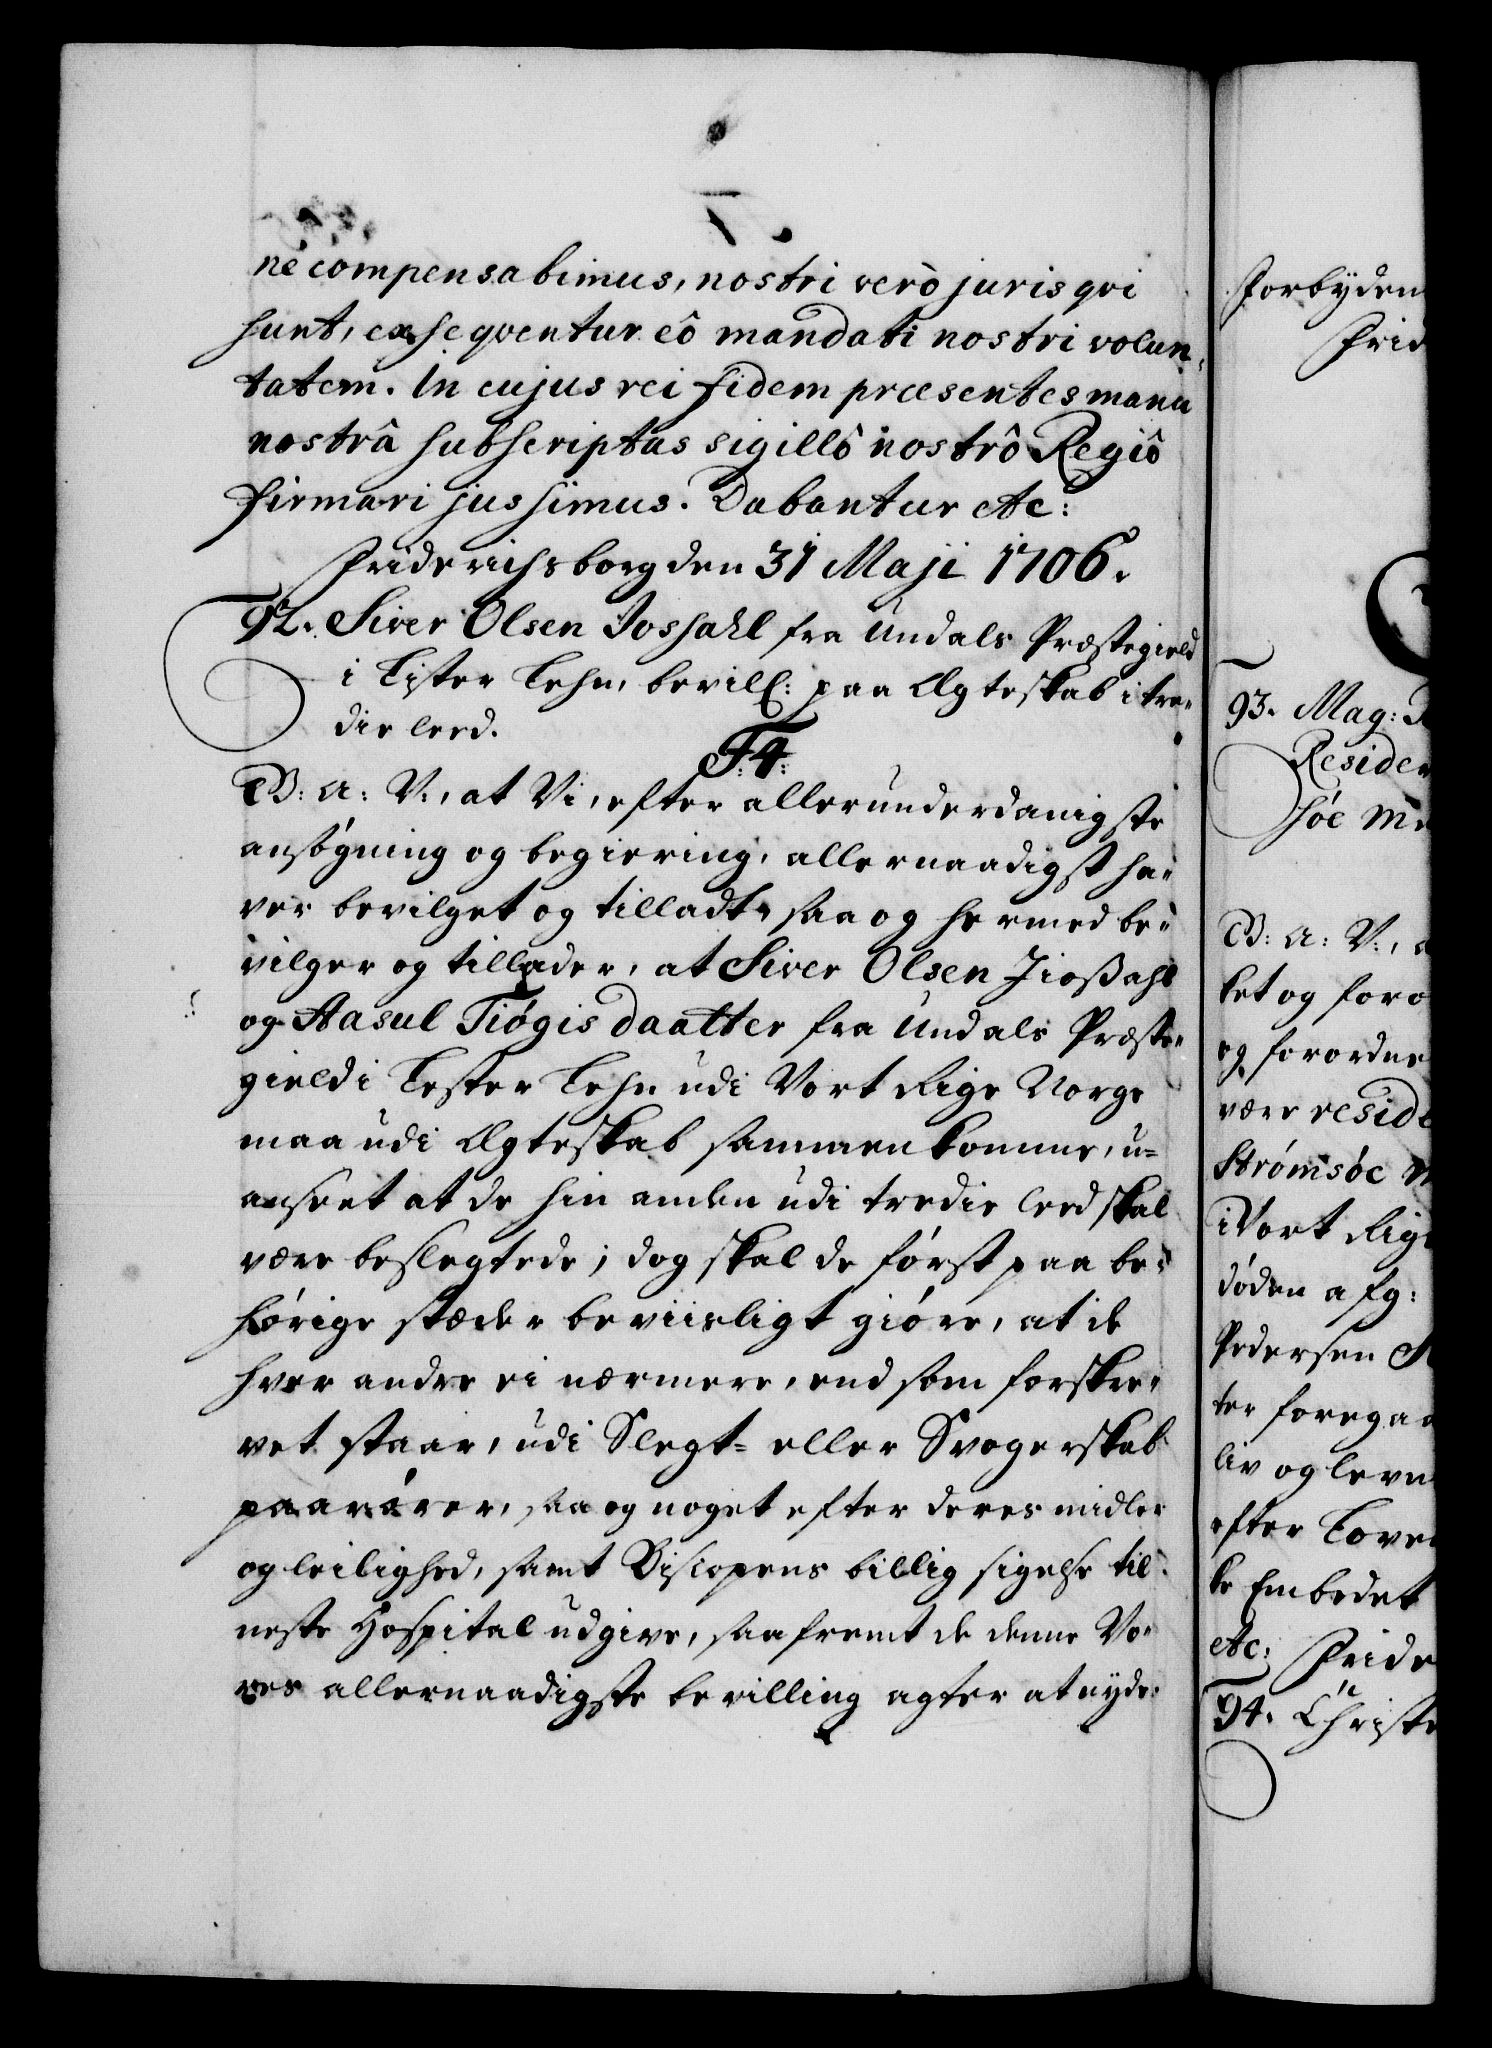 né compensabimus, nostri verò juris qvi
sunt, exseqventur eô mandati nostri volun-
tatem. In cujus rei fidem præsentes manu
nostrâ subscriptas sigillô nostrô Regiô
firmari jussimus. Dabantur etc:
Friderichsborg den 31 Maji 1706.
92. Siver Olsen Josdahl fra Undals Præstegield
i Lister Lehn, bevill: paa Ægteskab i tre-
die leed.
F: 4:
G: A: V:, at Vi, efter allerunderdanigste
ansøgning og begiering, allernaadigst ha-
ver bevilget og tilladt, saa og hermed be-
vilger og tillader, at Siver Olsen Jioßahl
og Aasul Tiøgis daatter fra Undals Præste-
gield i Lester Lehn udi Vort Rige Norge
maa udi Ægteskab sammenkomme, u-
anseet at de hin anden udi tredie leed skal
være beslegtede; dog skal de først paa be-
hørige stæder beviisligt giøre, at de
hver andre ei nærmere, end som forskre-
vet staar, udi Slegt- eller Svogerskab
paarører, saa og noget efter deres midler
og leilighed, samt Biscopens billig sigelse til
neste Hospital udgive, saafremt de denne Vo-
res allernaadigste bevilling agter at nyde:
Forbyden
Frid
93. Mag:
Residen
søe Me
G: A: V:, a
ket og foro
og forordne
være reside
Strømsøe M
i Vort Rige
døden afg:
Pedersen
ter foregaa
liv og levne
efter Loven
ke Embedet
etc: Fride
94. Christe